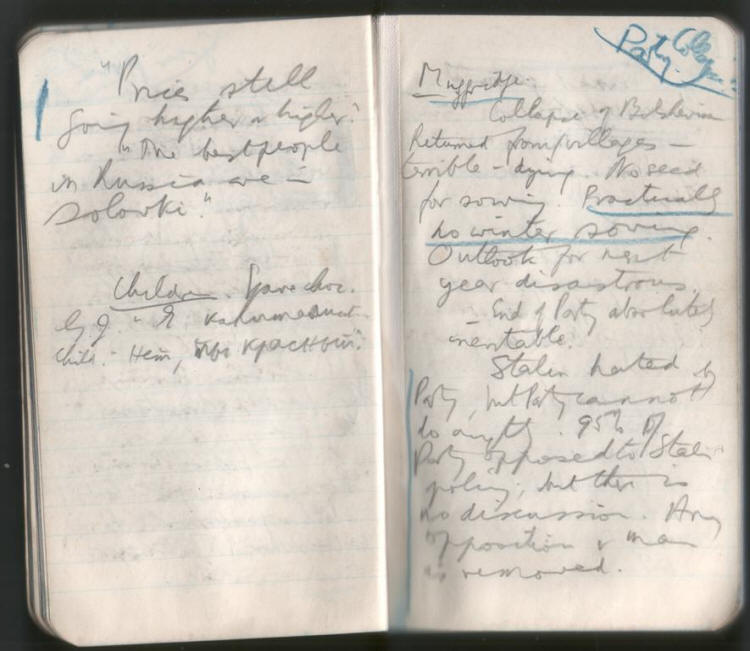 "Prices still
going higher & higher."
"The best people
in Russia are in
Solovki."
Children. Gave choc.
G.J. "Я капиталист
Child. "Нет, ты красный."
Party
Muggeridge.
Collapse of Bolshevism
Returned from villages –
terrible – dying. No seed
for sowing. Practically
no winter sowing.
Outlook for next
year disastrous.
End of Party absolutely
inevitable.
Stalin hated by
Party, but Party cannot
do anythg. 95% of
Party opposed to Stalin
policy, but there is
no discussion. Any
opposition & man
is removed.